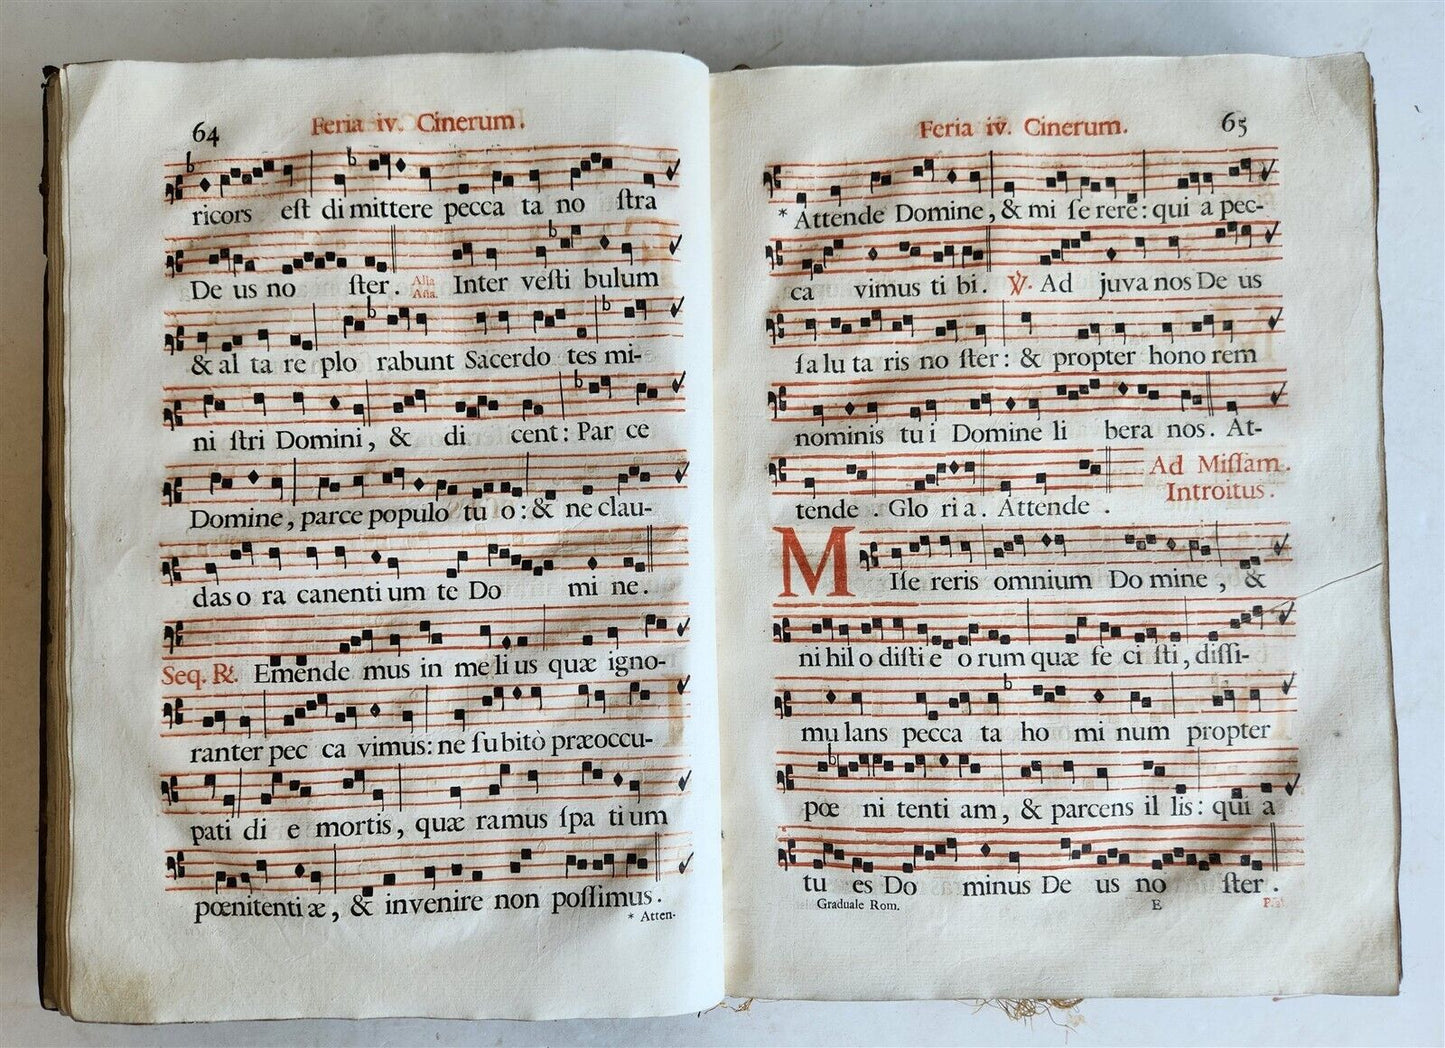 64
Feria iv. Cinerum.
ricors eſt di mittere pecca ta no ſtra
De us no ſter. Alia Aña. Inter veſti bulum
& al ta re plo rabunt Sacerdo tes mi-
ni ſtri Domini, & di cent: Par ce
Domine, parce populo tu o: & ne clau-
das o ra canenti um te Do mi ne.
Seq. ℟. Emende mus in me li us quæ igno-
ranter pec ca vimus: ne ſu bitò præoccu-
pati di e mortis, quæ ramus ſpa ti um
pœnitenti æ, & invenire non poſſimus.
* Atten-
Feria iv. Cinerum.
65
* Attende Domine, & mi ſe rere: qui a pec-
ca vimus ti bi. ℣. Ad juva nos De us
ſa lu ta ris no ſter: & propter hono rem
nominis tu i Domine li bera nos. At-
tende. Glo ri a. Attende.
Ad Miſſam.
Introitus.
MIſe reris omnium Do mine, &
ni hil o diſti e o rum quæ fe ci ſti, diſſi-
mu lans pecca ta ho mi num propter
pœ ni tenti am, & parcens il lis: qui a
tu es Do minus De us no ſter.
Graduale Rom.
E